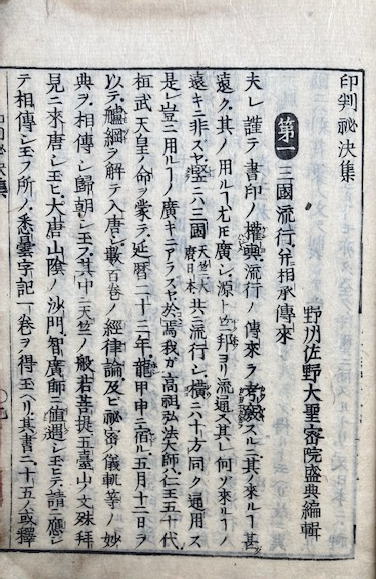 印判祕決集
野州佐野大聖密院盛典編輯
第一 三國流行幷相承傳來
夫レ謹テ書印ノ權輿流行ノ傳來ヲ考スルニ其ノ來ルヿ甚
遠ク其ノ用ルヿ尤モ廣シ源ト竺邦ヨリ流通ス其レ何ソ來ルヿノ
遠キニ非スヤ竪ニハ三國天竺大唐日本共ニ流行シ橫ニハ十方同ク通用ス
是レ豈ニ用ルヿノ廣キニアラスヤ於焉我カ高祖弘法大師仁王五十代
桓武天皇ノ命ヲ蒙テ延暦二十三年龍甲申ニ宿ル五月十二日ヲ
以テ艫綱ヲ解テ入唐シ數百卷ノ經律論及ヒ祕密儀軌等ノ妙
典ヲ相傳シ歸朝シ玉フ其中ニ天竺ノ般若菩提五臺山ノ文殊拜
見ニ來唐シ玉ヒ大唐山陰ノ沙門智廣師ニ值遇シ玉ヒテ請ニ應シ
テ相傳シ玉フ所ノ悉曇字記一卷ヲ得玉ヘリ其書二十五ノ或釋